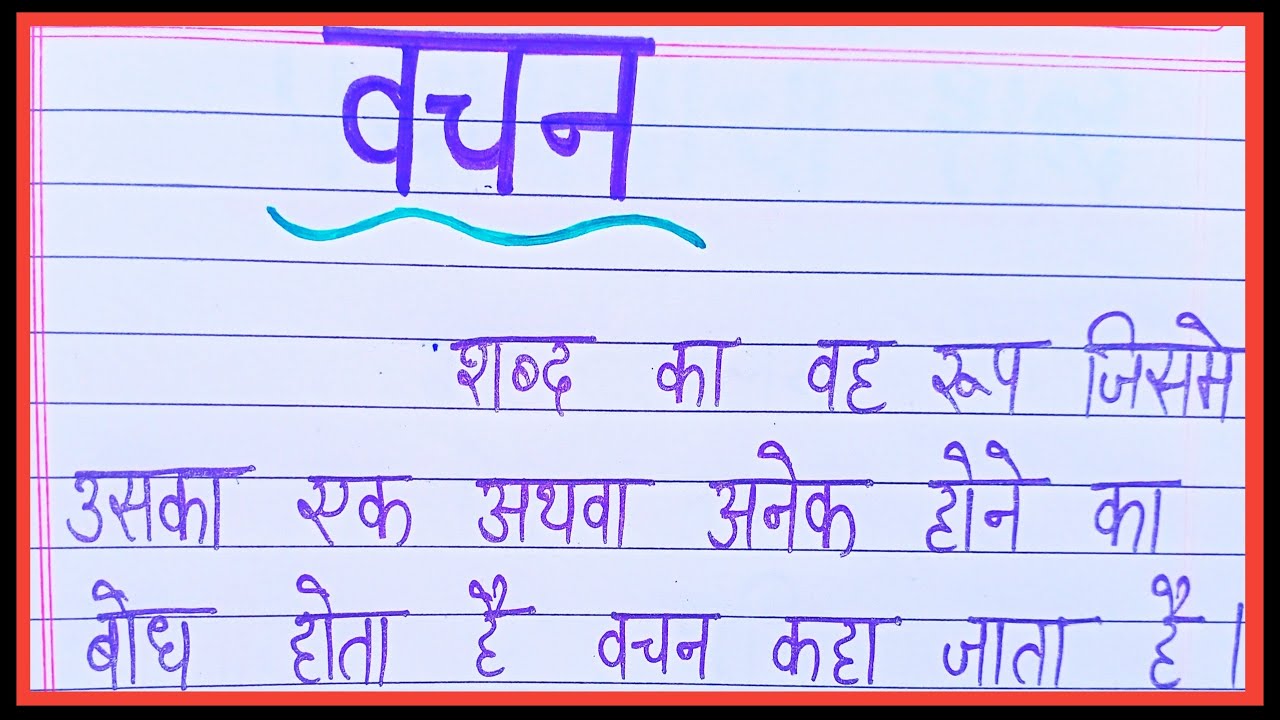 वचन
शब्द का वह रूप जिसमे
उसका एक अथवा अनेक होने का
बोध होता है वचन कहा जाता है।